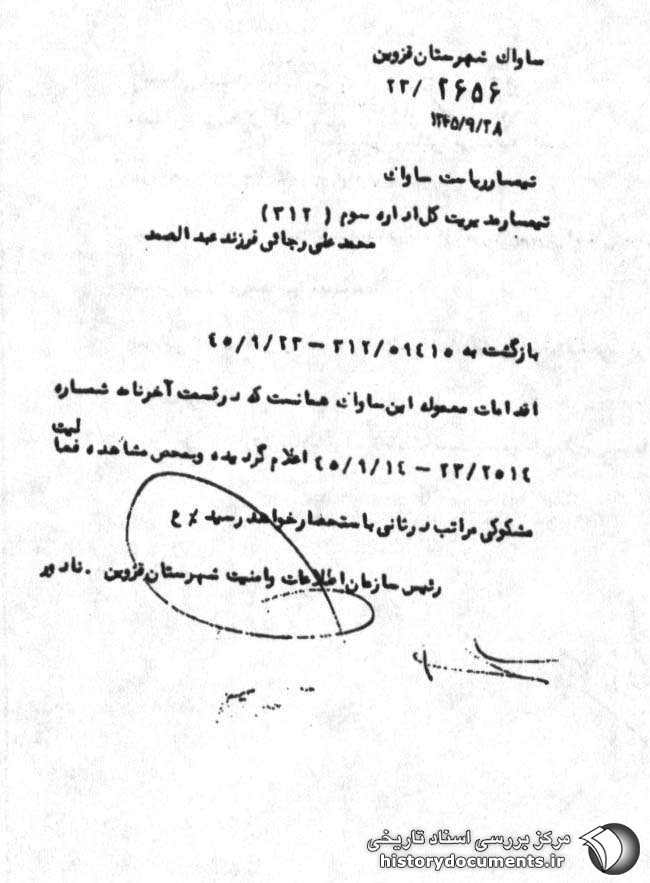 ساواك شهرستان قزوین
۲۳/ ۲۶۵۶
۱۳۴۵/۹/۲۸
تیمسار ریاست ساواك
تیمسار مدیریت کل اداره سوم ( ۳۱۲ )
محمد علی رجائی فرزند عبد الصمد
بازگشت به ۳۱۲/۵۹۴۱۵ – ۴۵/۹/۲۳
اقدامات معموله این ساواك همانست که در قسمت آخر نامه شماره
۲۳/۲۵۱۴ – ۴۵/۹/۱۴ اعلام گردیده وبمحض مشاهده فعالیت
مشکوکی مراتب در ثانی باستحضار خواهد رسید٪ ع
رئیس سازمان اطلاعات وامنیت شهرستان قزوین .
مرکز بررسی اسناد تاریخی
historydocuments.ir